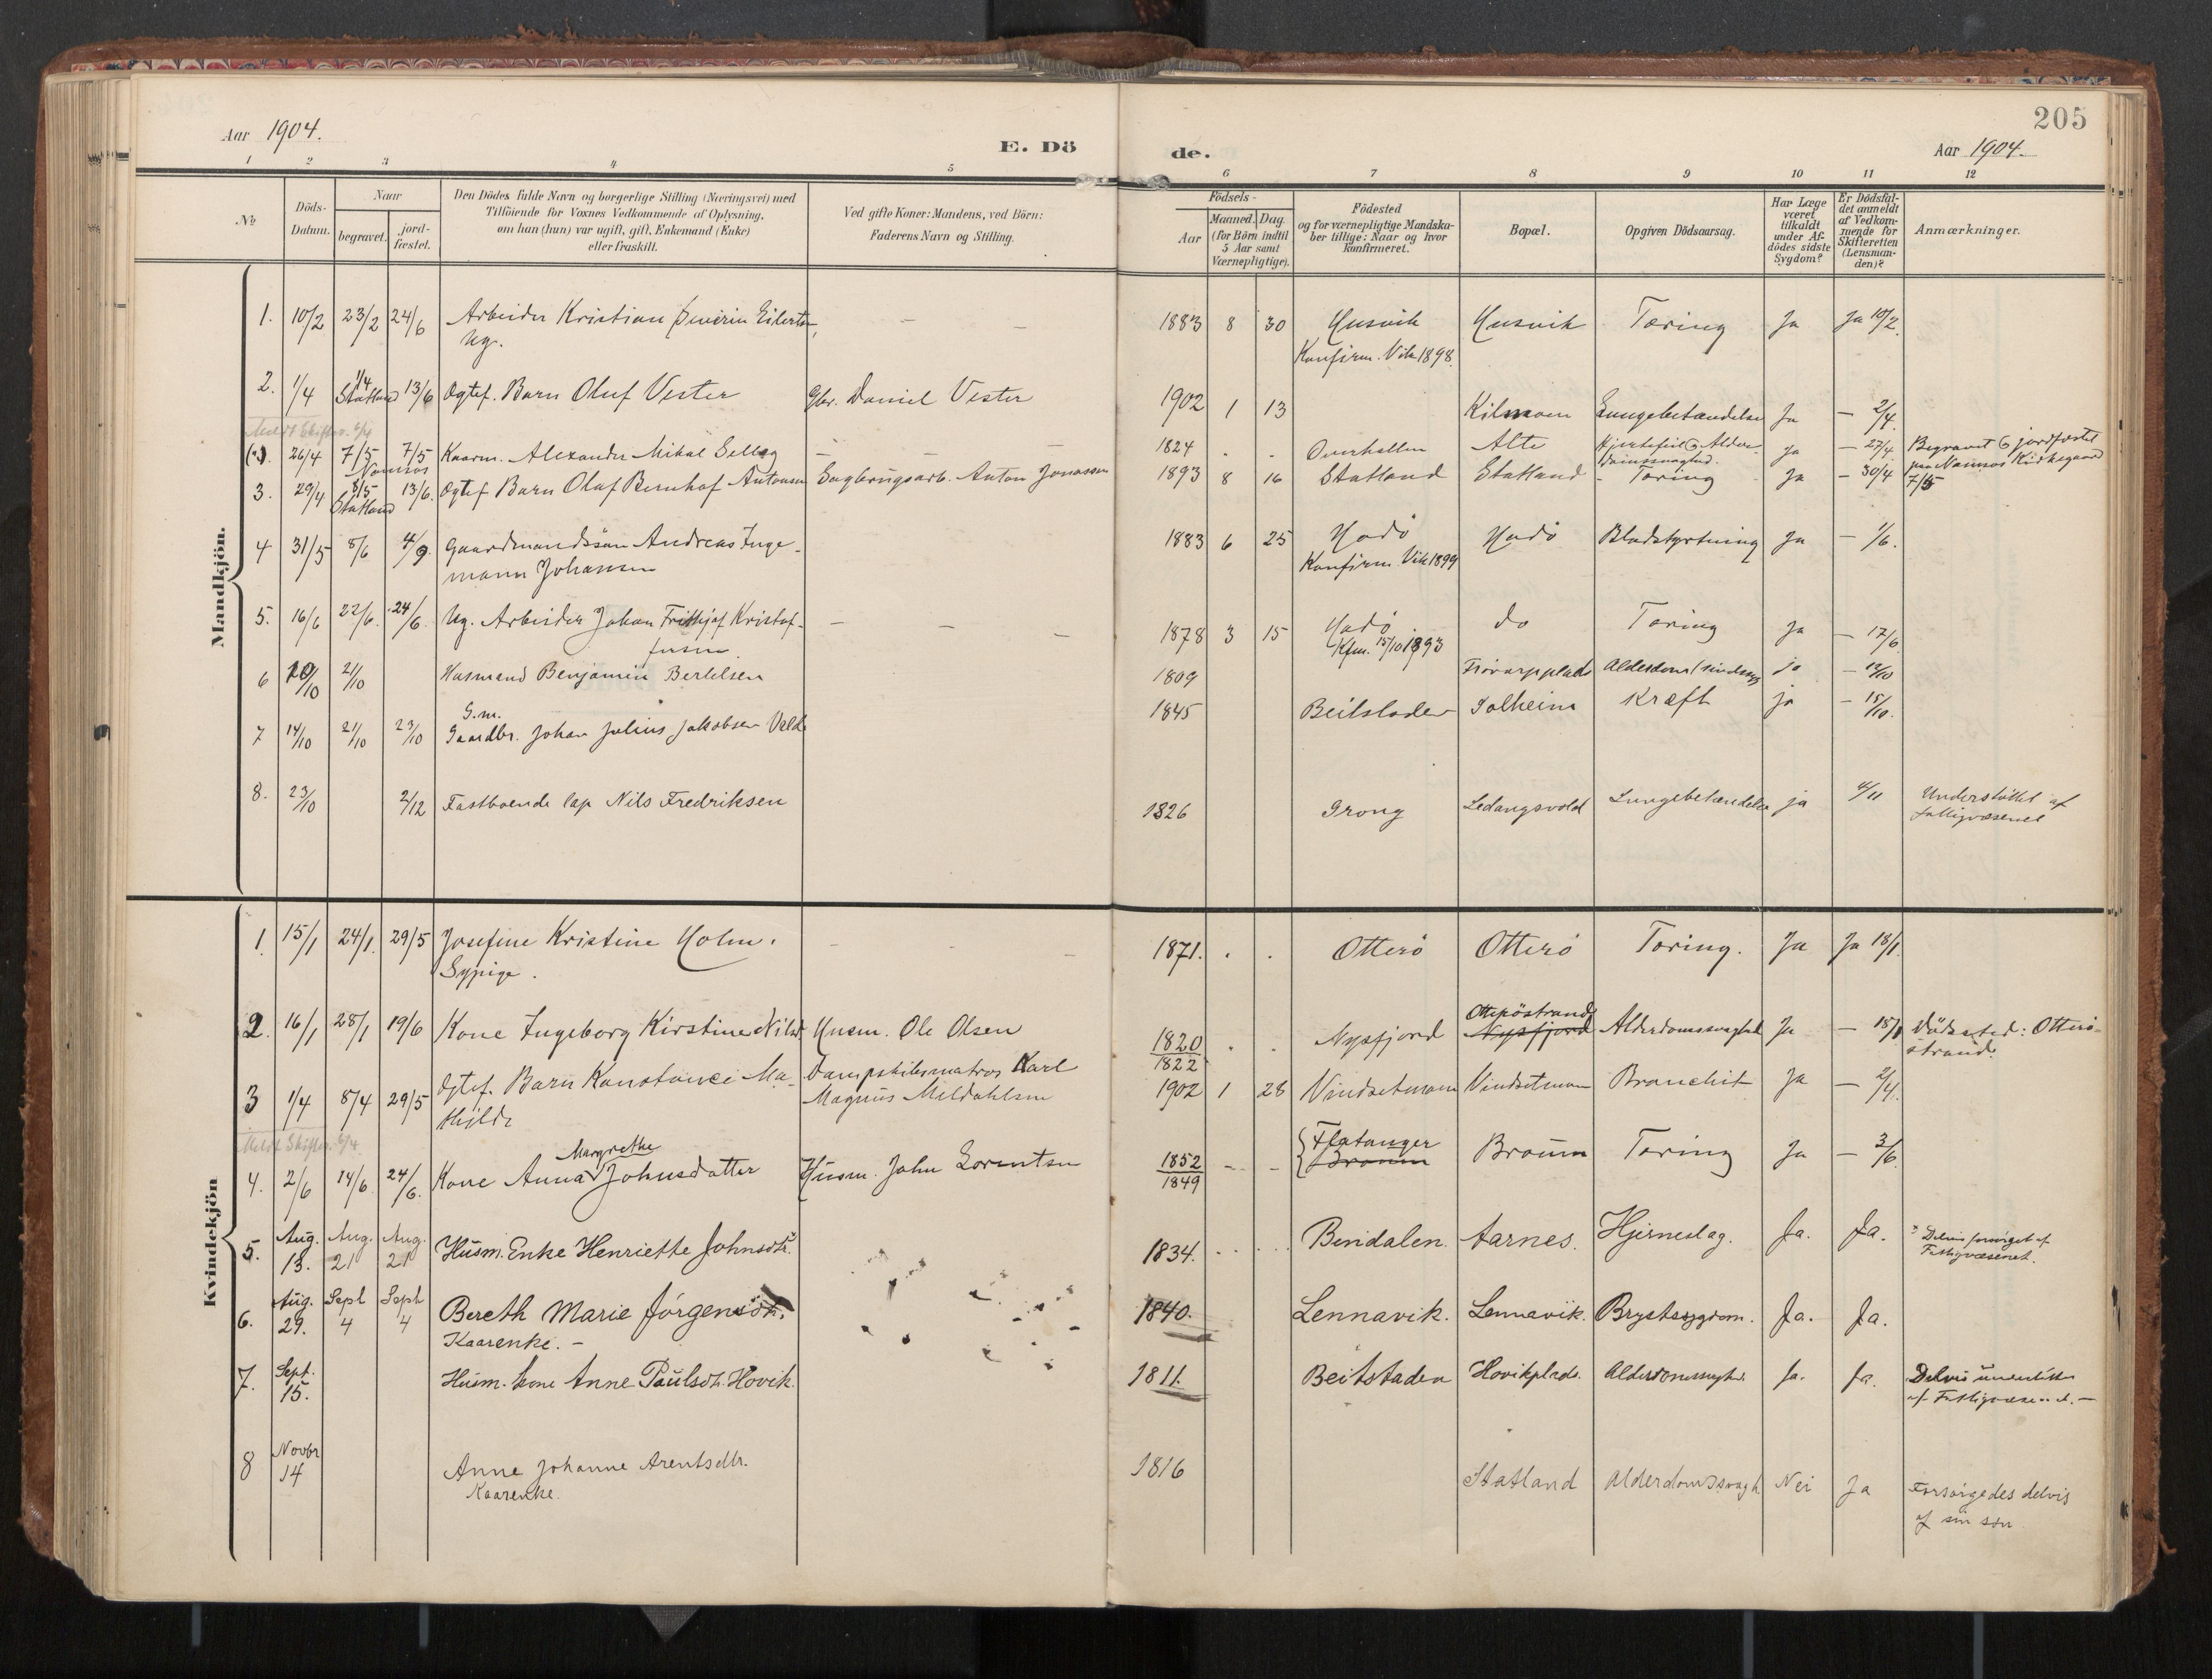 205
Aar 1904.
E. Dö
de.
Aar 1904.
1 2 3 4 5 6 7 8 9 10 11 12
№
Döds-
Datum.
Naar
begravet.
jord-
fæstet.
Den Dödes fulde Navn og borgerlige Stilling (Næringsvei) med
Tilföiende for Voxnes Vedkommende af Oplysning,
om han (hun) var ugift, gift, Enkemand (Enke)
eller fraskilt.
Ved gifte Koner: Mandens, ved Börn:
Faderens Navn og Stilling.
Födsels-
Aar
Maaned.
Dag.
(for Börn indtil
5 Aar samt
Værnepligtige).
Födested
og for værnepligtige Mandska-
ber tillige: Naar og hvor
konfirmeret.
Bopæl.
Opgiven Dödsaarsag.
Har Læge
været
tilkaldt
under Af-
dödes sidste
Sygdom?
Er Dödsfal-
det anmeldt
af Vedkom-
mende for
Skifteretten
(Lensman-
den)?
Anmærkninger.
Mandkjön.
1. 10/2 23/2 24/6 Arbeider Kristian Severin Eilertsen, – – 1883 8 30 Husvik Husvik Tæring Ja Ja 10/2.
Ug.
Konfirm. Vik 1898.
2. 1/4 1/4 Statland 13/6 Ægtef. Barn Oluf Vester Gbr. Daniel Vester 1902 1 13 Kilmoen Lungebetændelse Ja – 2/4.
Meldt Skifter. 6/4
26/4 7/5 Namsos 7/5 Kaarm. Alexander Mikal Sellæg – – 1824 . . Overhallen Alte Hjertefeil & Alder-
domssvaghed. ja – 27/4 Begravet & jordfæstet
paa Namsos Kirkegaard
7/5
3. 29/4 8/5 Statland 13/6. Ægtef Barn Olaf Bernhof Antonsen Sagbrugsarb. Anton Jonassen 1893 8 16 Statland Statland Tæring Ja – 30/4
4 31/5 8/6 4/9. Gaardmandssøn Andreas Inge-
mann Johansen 1883 6 25 Hadø Hadø Blodstyrtning Ja – 1/6.
Konfirm. Vik 1899
5. 16/6 22/6. 24/6. Ug. Arbeider Johan Frithjof Kristof-
fersen. – – – 1878 3 15 Hadø do Tæring Ja – 17/6
Kfm. 15/10 1893
6 10/10 21/10 Husmand Benjamin Bertelsen 1809 Alderdom ja – 12/10
7 14/10 21/10 23/10 G.m.
Gaardbr. Johan Julius Jakobsen 1845 Beitstaden Solheim Kræft ja – 15/10.
8. 23/10 2/12 Fastboende lap Nils Fredriksen 1826 Grong Ledangsvold Lungebetændelse ja 4/11 Understöttet af
fattigvæsenet
Kvindekjön
1. 15/1 24/1. 29/5 Josefine Kristine Holm. – – 1871. . . Otterø Otterø Tæring. Ja Ja 18/1.
Sypige.
2. 16/1 28/1 19/6 Kone Ingeborg Kirstine Nilsd. Husm. Ole Olsen 1820 . . Nysfjord Otterøstrand
Nysfjord Alderdomssvaghed Ja – 18/1 Dödssted: Otterø-
strand.
1822
3 1/4 8/4 29/5 Ægtef. Barn Konstance Ma-
thilde Dampskibsmatros Karl
Magnus Meldahlsen 1902 1 28 Vindsetmoen Vindsetmoen Bronchit Ja – 2/4.
Meldt Skifter. 6/4
4. 2/6 14/6. 24/6. Kone Anna Margrethe Johnsdatter Husm. John Lorentsen 1852
1849 – – Flatanger
Braum Braum Tæring Ja – 3/6.
5. Aug.
13. Aug.
21 Aug.
21 Husm. Enke Henriette Johnsdtr. 1834. Bindalen. Aarnes. Hjerneslag. Ja. Ja. Delvis forsörget af
Fattigvæsenet.
6. Aug.
29. Sept
4 Septr
4 Bereth Marie Jörgensdtr. 1840. Lennavik. Lennavik. Brystsygdom. Ja. Ja.
Kaarenke. –
7. Sept.
15. Husm. kone Anne Paulsdtr. Hovik. 1811. Beitstaden Hovikplads. Alderdomssvaghed. Ja. Ja. Delvis understöttet
af Fattigvæsenet. –
8 Novbr
14 Anne Johanne Arentsdtr. 1816 Statland Alderdomssvagh Nei Ja Forsörgedes delvis
af sin sön
Kaarenke.